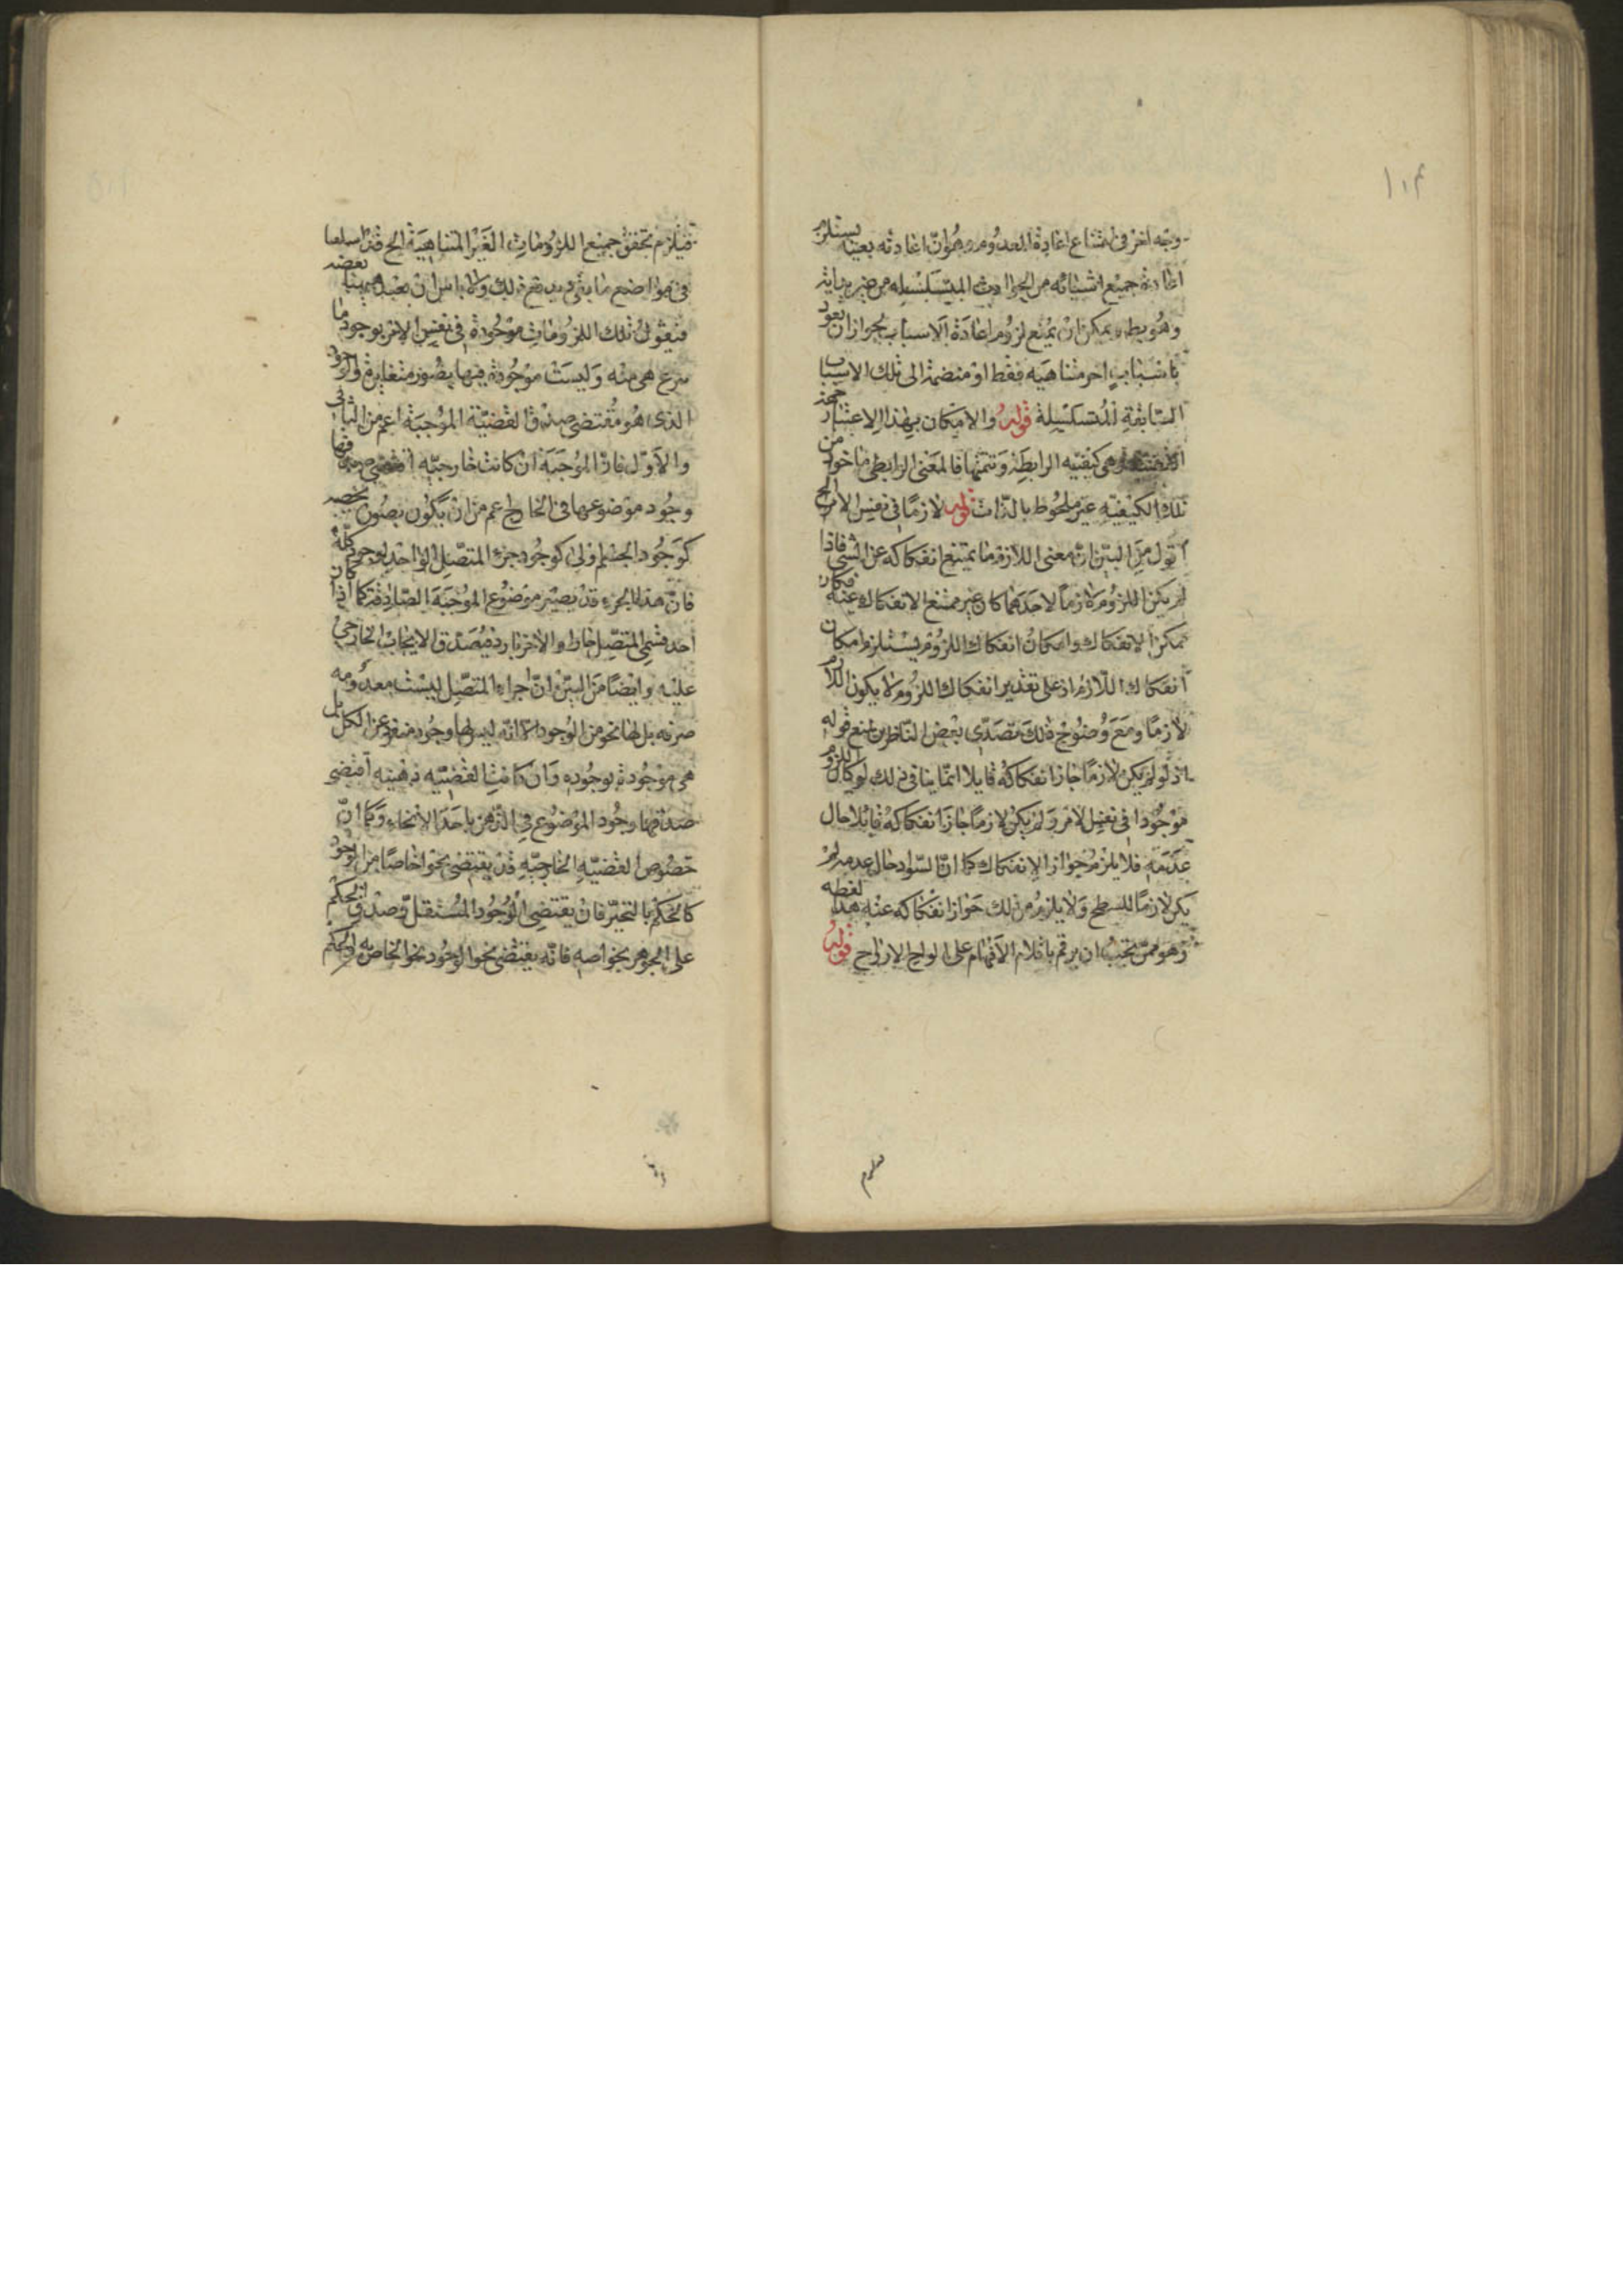 ١٠٤
وجه اخر فى امتناع اعادة المعدوم وهو ان اعادته بعينه يستلزم
اعادة جميع اسبابه من الحوادث المتسلسله من غير نهاية
وهو بط ويمكن ان يمنع لزوم اعادة الاسباب بجواز ان يعود
باسباب اخر متناهيه فقط او منضمة الى تلك الاسباب
السابقة المتسلسلة قوله والامكان بهذا الاعتبار
هى كيفيه الرابطة وتتمتها فالمعنى الرابطى ماخوذ من
تلك الكيفيه غير ملحوظ بالذات قوله لازما فى نفس الامر الخ
اقول من البين ان معنى اللازم ما يمتنع انفكاكه عن الشى فاذا
لم يكن اللزوم لازما لاحدهما كان غير ممتنع الانفكاك عنه فكان
ممكن الانفكاك وامكان انفكاك اللزوم يستلزم امكان
انفكاك اللازم اذ على تقدير انفكاك اللزوم لا يكون اللازم
لازما ومع وضوح ذلك تصدى بعض الناظرين لمنع قوله
اذ لو لم يكن لازما جاز انفكاكه قايلا انما ينافى ذلك لو كان اللزوم
موجودا فى نفس الامر ولم يكن لازما جاز انفكاكه قائلا حال
عدمه فلا يلزم جواز الانفكاك كما ان السواد حال عدمه لم
يكن لازما للسطح ولا يلزم من ذلك جواز انفكاكه عنه هذا لفظه
وهو ممن يجب ان يرقم باقلام الافهام على الواح الارواح قوله
فيلزم تحقق جميع اللزومات الغير المتناهية الخ قد اسلفنا
فى مواضع ما يفى بدفع ذلك ولا باس ان نعيد ههنا بعضه
فنقول تلك اللزومات موجودة فى نفس الامر بوجود ما
ينتزع هى منه وليست موجودة فيها بصور متغايرة والوجود
الذى هو مقتضى صدق القضية الموجبة اعم من الثانى
والاول فان الموجبة ان كانت خارجيه اقتضى صدقها
وجود موضوعها فى الخارج اعم من ان يكون بصورة تخصه
كوجود الجسم اولى كوجود جزء المتصل الواحد بوجود كله
فان هذا الجزء قد يصير موضوع الموجبة الصادقة كما اذا كان
احد قسمى المتصل حارا والاخر باردا فيصدق الايجاب الخارجى
عليه وايضا من البين ان اجزاء المتصل ليست معدومه
صرفه بل لها نحو من الوجود الا انه ليس لها وجود منفرد عن الكل بل
هى موجودة بوجوده وان كانت القضيه ذهنيه اقتضى
صدقها وجود الموضوع فى الذهن باحد الانحاء وكما ان
خصوص القضيه الخارجيه قد يقتضى نحوا خاصا من الوجود
كالحكم بالتحيز فان يقتضى الوجود المستقل وصدق الحكم
على الجوهر بخواصه فانه يقتضى نحو الوجود نحو الخاص به والحكم